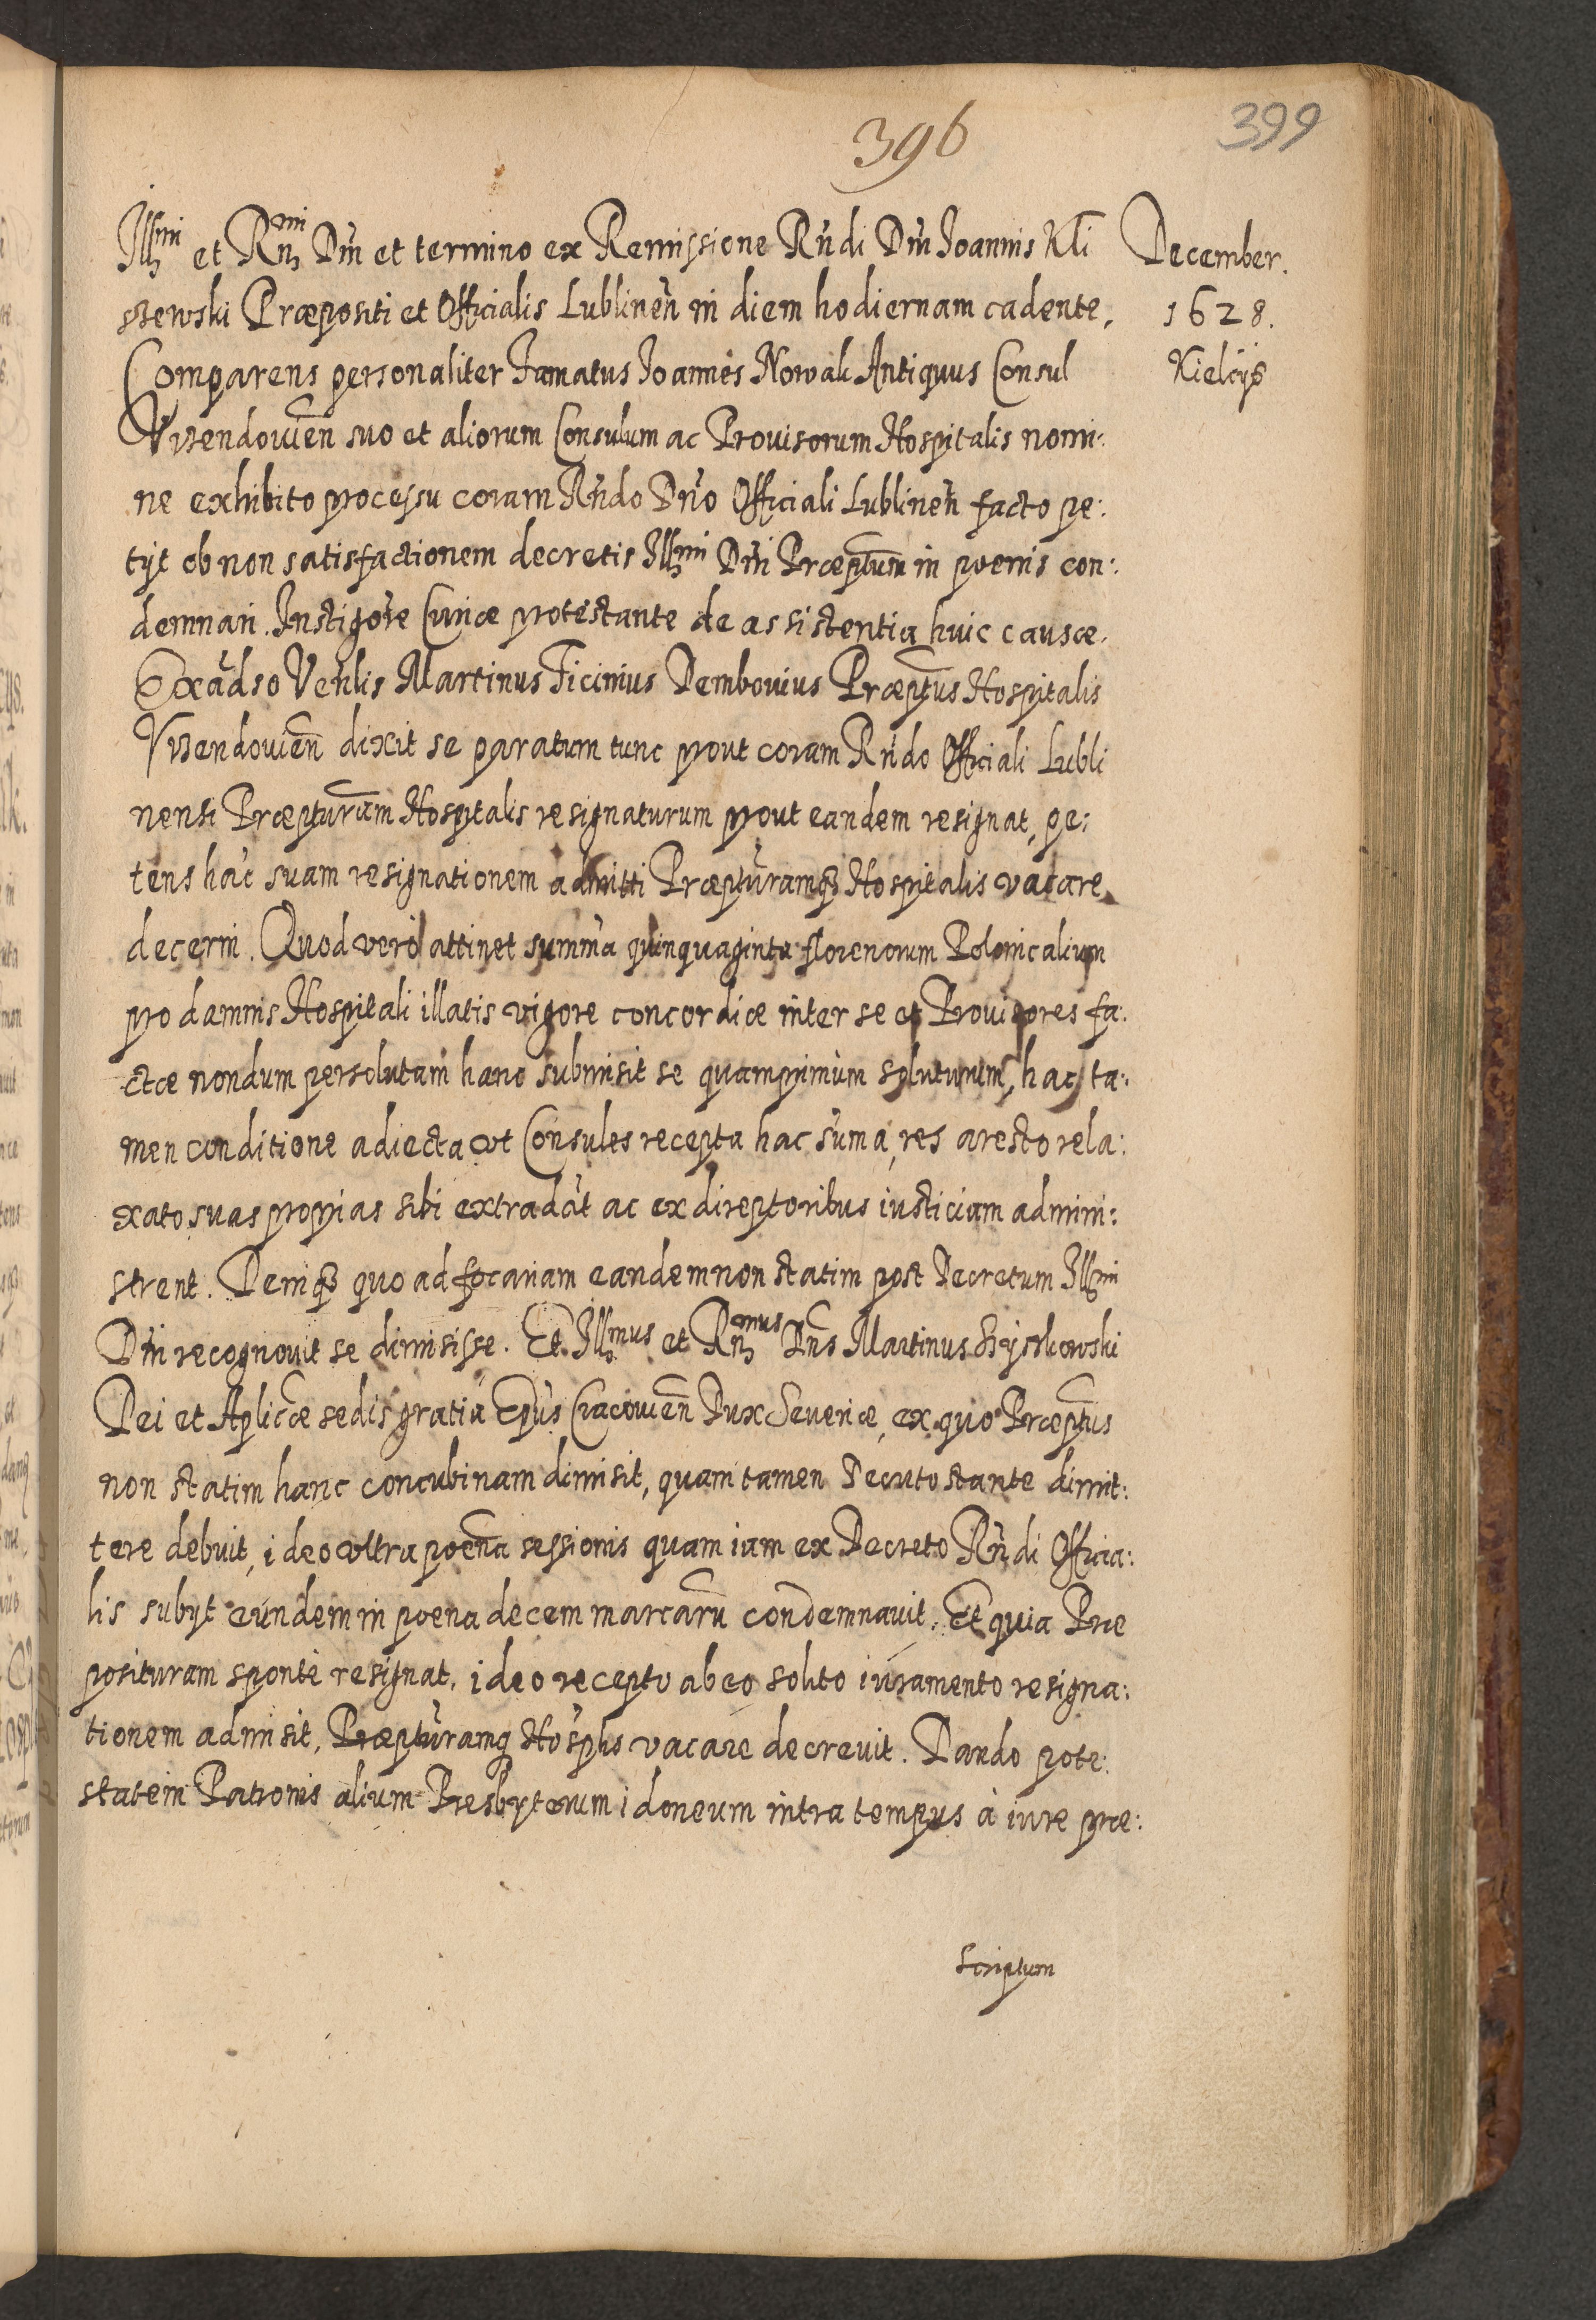 396
399
Illmi et Rmi Dni et termino ex Remissione Rndi Dni Joannis Kli
szewski Præpositi et Officialis Lublinen in diem hodiernam cadente,
Comparens personaliter Famatus Joannes Nowak Antiquus Consul
Vrzendouien suo et aliorum Consulum ac Prouisorum Hospitalis nomi:
ne exhibito processu coram Rndo Dno Officiali Lublinen facto pe:
tyt ob non satisfactionem decretis Illmi Dni Præptum in poenis con:
demnari. Instigore Curiæ protestante de assistentia huic causæ.
Ex adso Venlis Martinus Ficinius Dembouius Præptus Hospitalis
Vrzendouien dixit se paratum tunc prout coram Rndo Officiali Lubli
nensi Præpturam Hospitalis resignaturum prout eandem resignat, pe:
tens hac suam resignationem admitti Præpturamq Hospitalis vacare
decerni. Quod vero attinet summa quinquaginta florenorum Polonicalium
pro damnis Hospitali illatis vigore concordiæ inter se et Prouisores fa:
ctæ nondum persolutam hanc submisit se quamprimum soluturum, hac ta:
men conditione adiecta vt Consules recepta hac suma, res aresto rela:
xato, suas proprias sibi extradat ac ex direptoribus iusticiam admini:
strent. Deniq quo ad focariam eandem non statim post Decretum Illmi
Dni recognouit se dimisisse. Et Illmus et Rmus Dns Martinus Szyszkowski
Dei et Aplicæ sedis gratia Epus Cracouien Dux Seueriæ, ex quo Præptus
non statim hanc concubinam dimisit, quam tamen Decreto stante dimit:
tere debuit, ideo vltra poena sessionis quam iam ex Decreto Rndi Officia:
lis subyt eundem in poena decem marcaru condemnauit. Et quia Præ
posituram sponte resignat, ideo recepto ab eo solito iuramento resigna:
tionem admisit, Præpturamq Hosplis vacare decreuit. Dando pote:
statem Patronis alium Presbyterum idoneum intra tempus à iure præ:
scriptum
December.
1628.
Kielcys